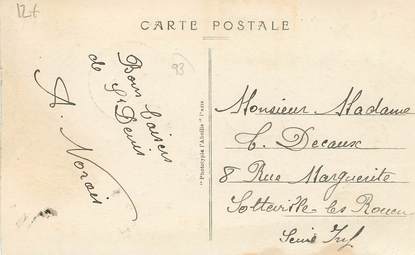 12f
CARTE POSTALE
93
Bons baisers
de St Denis
A. Norais
"Phototypie l'Abeille" Paris
Monsieur Madame
C. Decaux
8 Rue Marguerite
Sotteville-les Rouen
Seine Inf